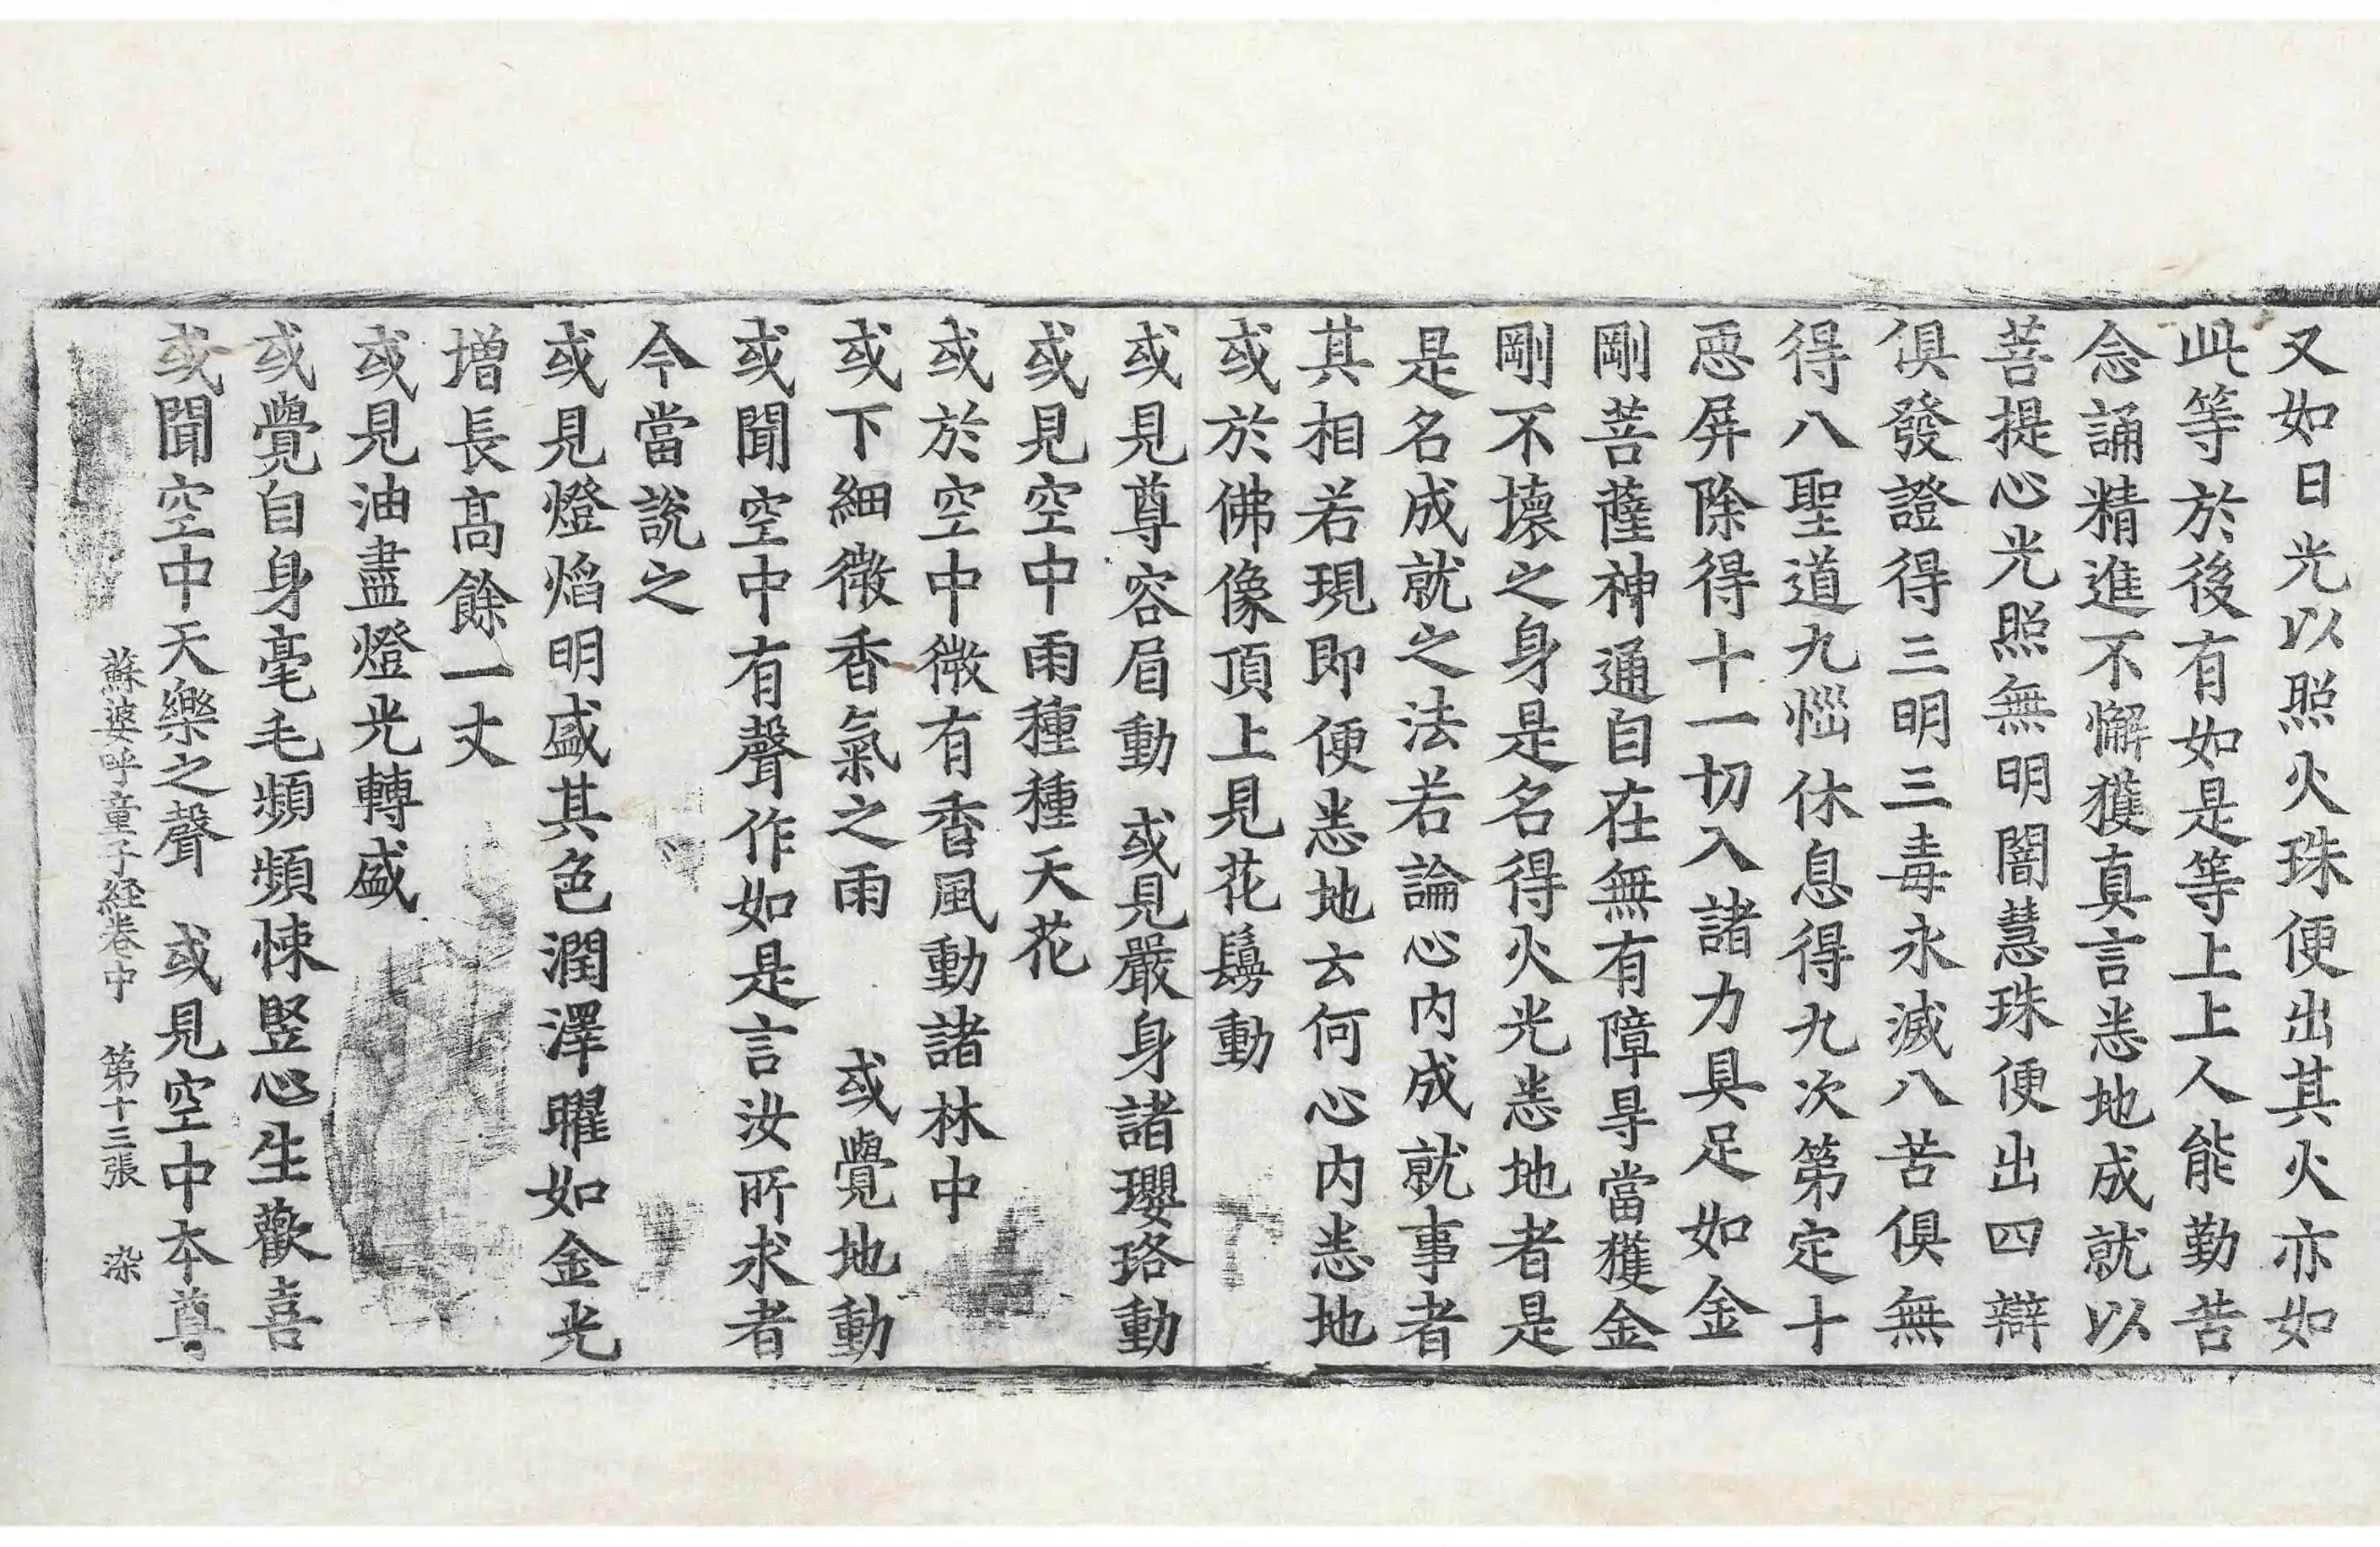 又如日光以照火珠便出其火亦如
此等於後有如是等上上人能勤苦
念誦精進不懈獲真言悉地成就以
菩提心光照無明闇慧珠便出四辯
俱發證得三明三毒永滅八苦俱無
得八聖道九惱休息得九次第定十
惡屏除得十一切入諸力具足如金
剛菩薩神通自在無有障导當獲金
剛不壞之身是名得火光悉地者是
是名成就之法若論心內成就事者
其相若現即便悉地云何心內悉地
或於佛像頂上見花鬘動
或見尊容眉動　或見嚴身諸瓔珞動
或見空中雨種種天花
或於空中微有香風動諸林中
或下細微香氣之雨　或覺地動
或聞空中有聲作如是言汝所求者
今當說之
或見燈焰明盛其色潤澤曜如金光
增長高餘一丈
或見油盡燈光轉盛
或覺自身毫毛頻頻悚竪心生歡喜
或聞空中天樂之聲　或見空中本尊
蘇婆呼童子経卷中　第十三張　染